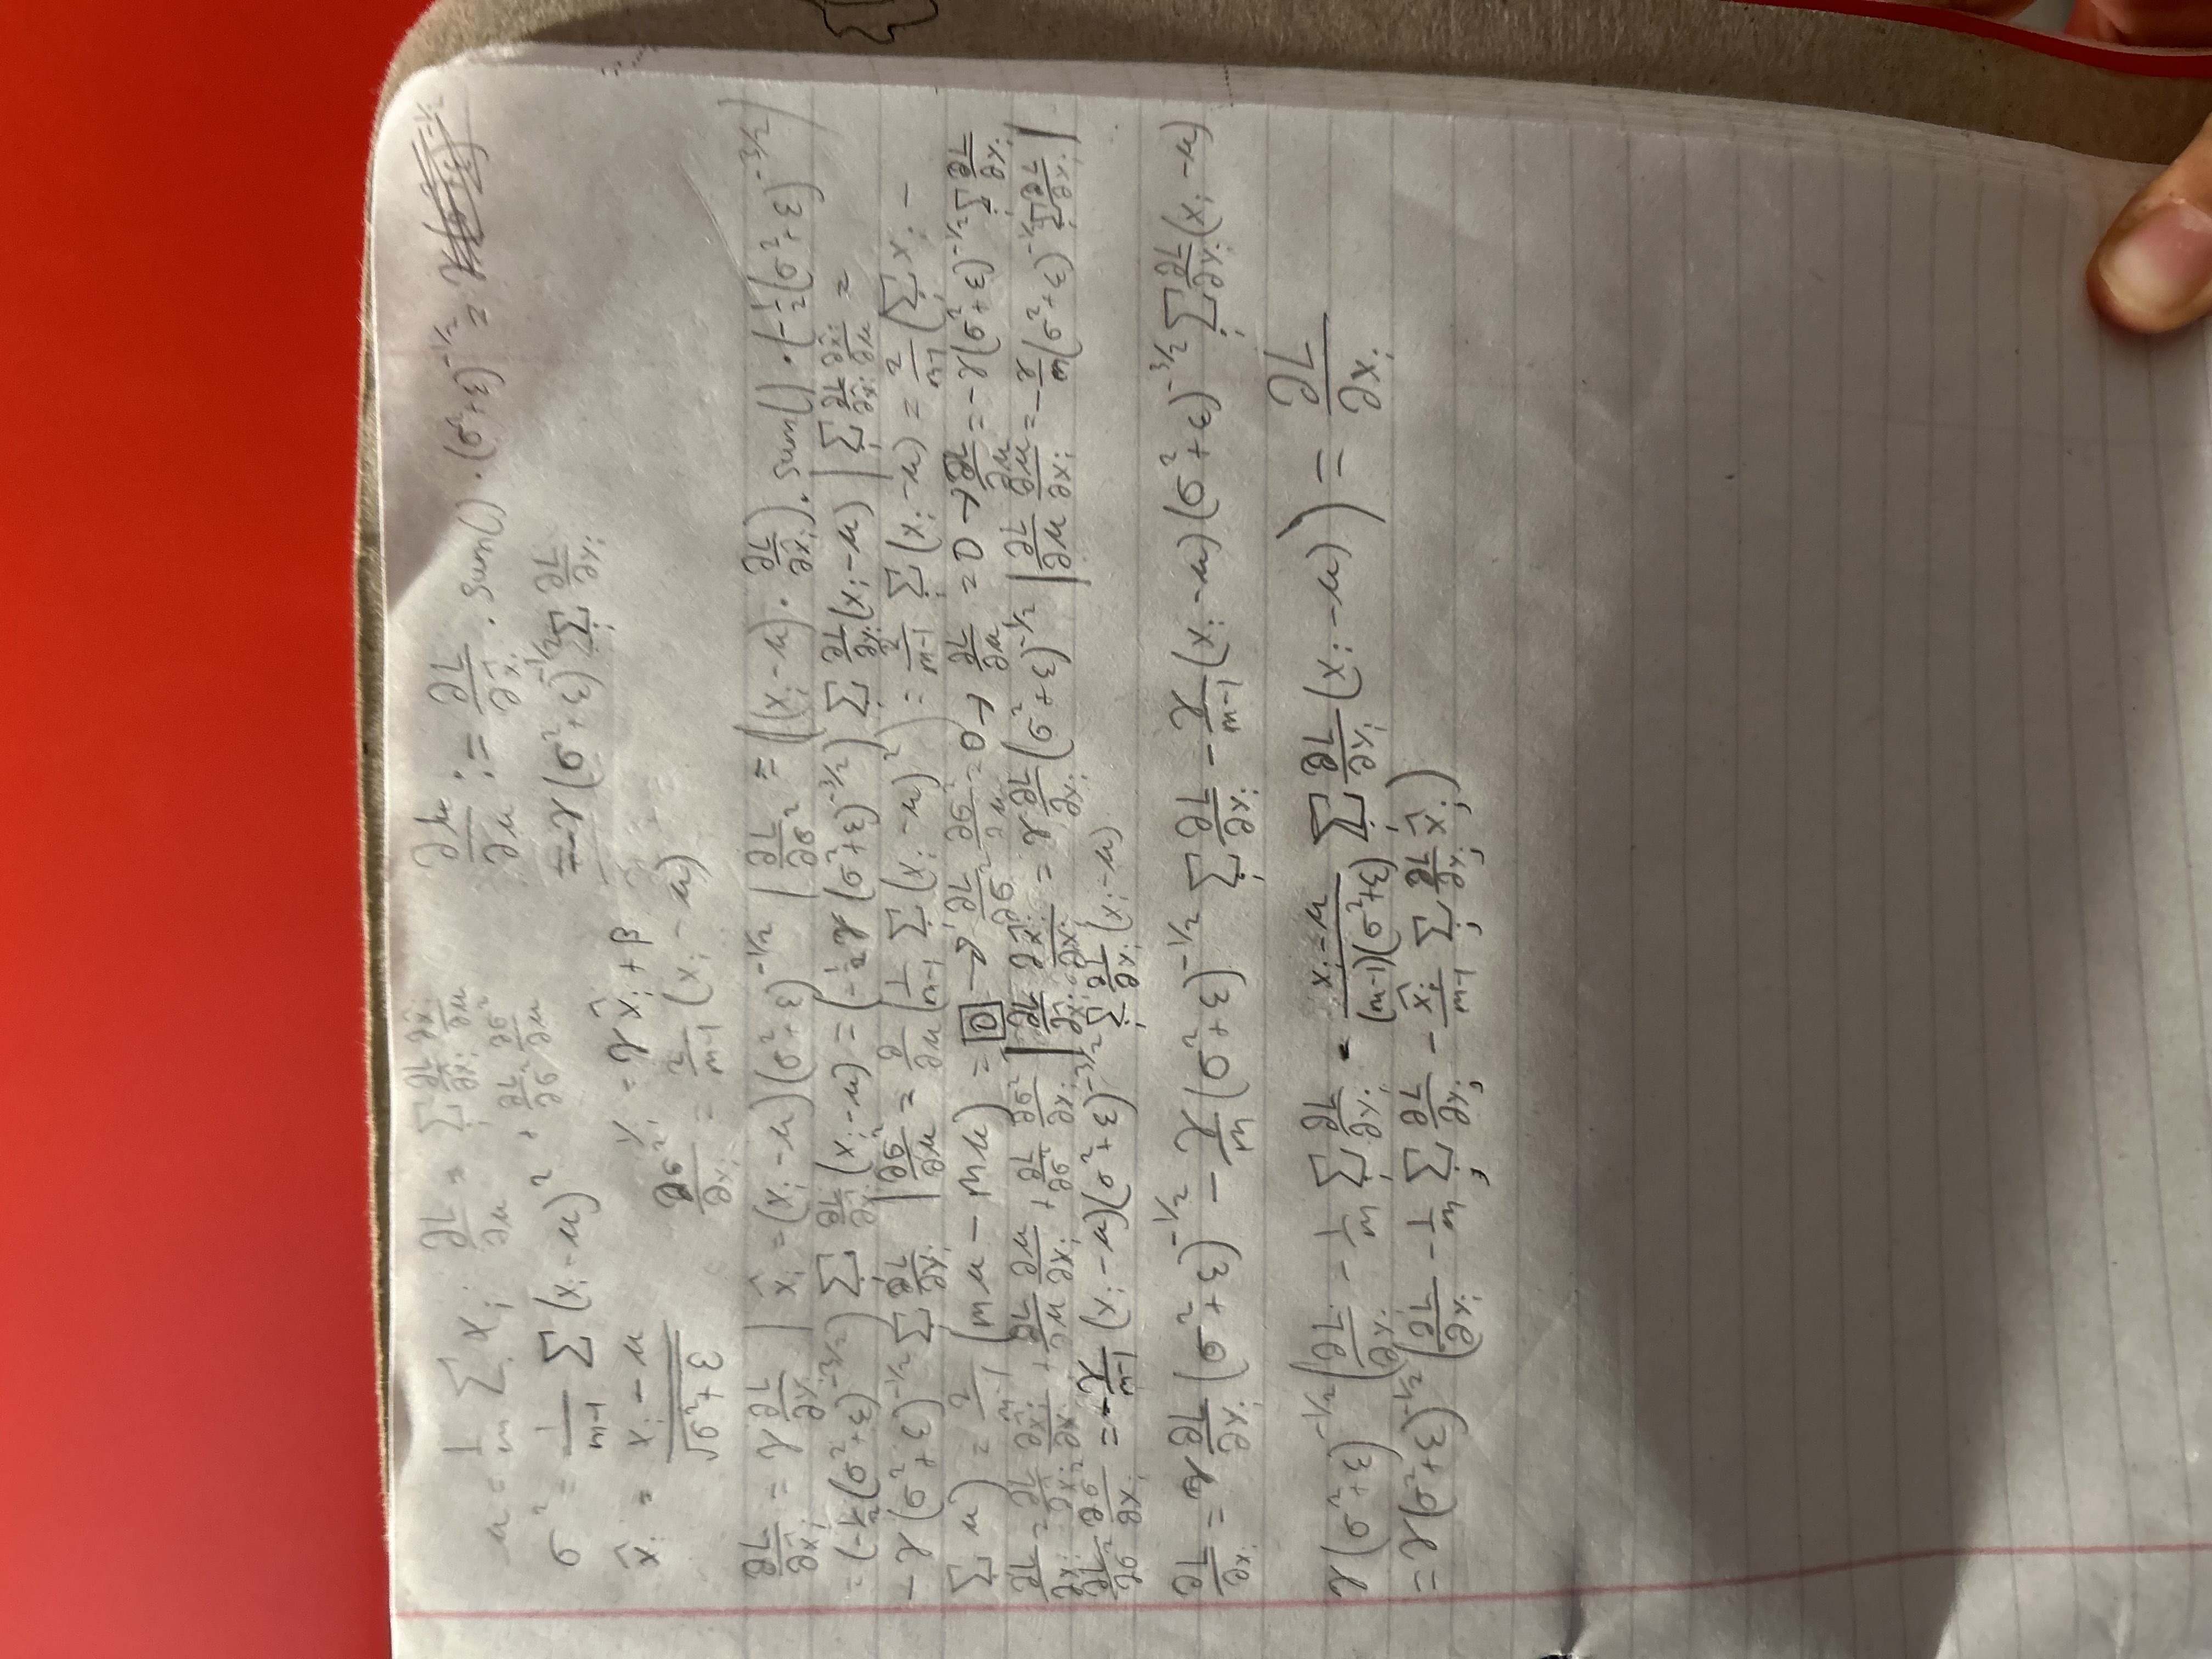 μ = 1/m ∑ xᵢ   ∂L/∂μ = ∑ᵢ ∂L/∂x̂ᵢ ∂x̂ᵢ/∂μ + ∂L/∂σ² ∂σ²/∂μ
∂L/∂x̂ · sum() · (σ²+ε)^(-1/2) =
σ² = 1/(m-1) ∑ (xᵢ-μ)²   = -γ(σ²+ε)^(-1/2) ∑ᵢ ∂L/∂yᵢ
x̂ᵢ = (xᵢ-μ)/√(σ²+ε)   yᵢ = γx̂ᵢ + β
∂σ²/∂xᵢ = 2/(m-1) (xᵢ-μ)
∂L/∂x̂ᵢ = γ ∂L/∂yᵢ | x̂ᵢ = (xᵢ-μ)(σ²+ε)^(-1/2) | ∂L/∂σ² = ((xᵢ-μ) · ∂L/∂x̂ᵢ).sum() · (-1/2(σ²+ε)^(-3/2))
= (-1/2(σ²+ε)^(-3/2)) ∑ᵢ ∂L/∂x̂ᵢ (xᵢ-μ) = (-1/2 γ(σ²+ε)^(-3/2)) ∑ᵢ ∂L/∂yᵢ (xᵢ-μ) | ∑ᵢ ∂L/∂x̂ᵢ ∂x̂ᵢ/∂μ =
-γ(σ²+ε)^(-1/2) ∑ᵢ ∂L/∂yᵢ | ∂σ²/∂μ = ∂/∂μ (1/(m-1) ∑ᵢ (xᵢ-μ)²) = 2/(m-1) ∑ᵢ (xᵢ-μ) = 2/(m-1) (∑ xᵢ -
∑ᵢ μ) = 2/(m-1) (mμ - mμ) = 0 → ∂L/∂σ² ∂σ²/∂μ = 0 → ∂L/∂μ = 0 + ∂L/∂μ = -γ(σ²+ε)^(-1/2) ∑ᵢ ∂L/∂yᵢ
∂L/∂xᵢ = ∂L/∂x̂ᵢ ∂x̂ᵢ/∂xᵢ + ∂L/∂μ ∂μ/∂xᵢ + ∂L/∂σ² ∂σ²/∂xᵢ | ∂L/∂x̂ᵢ ∂x̂ᵢ/∂xᵢ = γ ∂L/∂yᵢ (σ²+ε)^(-1/2) | ∂L/∂μ ∂μ/∂xᵢ = -γ/m (σ²+ε)^(-1/2) ∑ᵢ ∂L/∂yᵢ |
∂L/∂σ² ∂σ²/∂xᵢ = -γ/(m-1) (xᵢ-μ)(σ²+ε)^(-3/2) ∑ᵢ ∂L/∂yᵢ (xᵢ-μ)
∂L/∂xᵢ = γ ∂L/∂yᵢ (σ²+ε)^(-1/2) - γ/m (σ²+ε)^(-1/2) ∑ᵢ ∂L/∂yᵢ - γ/(m-1) (xᵢ-μ)(σ²+ε)^(-3/2) ∑ᵢ ∂L/∂yᵢ (xᵢ-μ)
γ(σ²+ε)^(-1/2) (∂L/∂yᵢ - 1/m ∑ᵢ ∂L/∂yᵢ - (xᵢ-μ)/((m-1)(σ²+ε)) ∑ᵢ ∂L/∂yᵢ (xᵢ-μ)) = ∂L/∂xᵢ
= γ(σ²+ε)^(-1/2) (∂L/∂yᵢ - 1/m ∑ⱼ ∂L/∂yⱼ - x̂ᵢ/(m-1) ∑ⱼ ∂L/∂yⱼ x̂ⱼ)